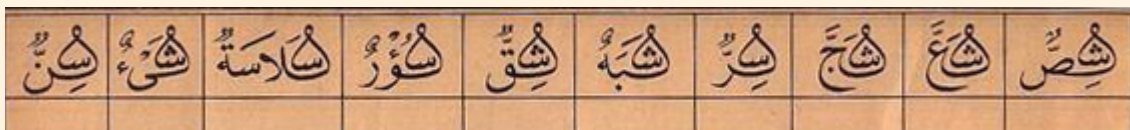 شِصٌّ شَغَّ شَجَّ سِرٌّ شَبَهٌ شِقٌّ سُؤْرٌ سَلَاسَةٌ شَىْءٌ سِنٌّ